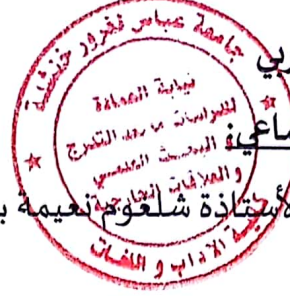 جامعة عباس لغرور خنشلة
نيابة العمادة
للدراسات ما بعد التدرج
و البحث العلمي
و العلاقات الخارجية
كلية الآداب و اللغات
ري
ماعي:
الأستاذة شلغوم نعيمة ب